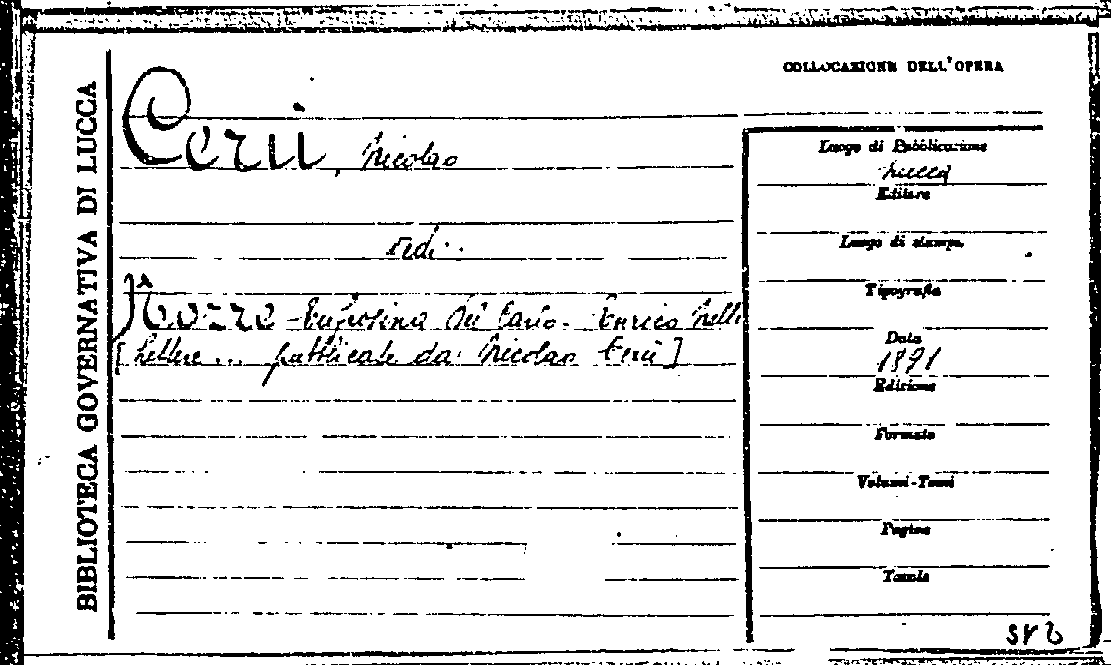 BIBLIOTECA GOVERNATIVA DI LUCCA
COLLOCAZIONE DELL'OPERA
Cerù, Nicolao
vedi:
Nozze Eufrosina Del Carlo - Enrico Nelli
[Lettere... pubblicate da Nicolao Cerù]
Luogo di Pubblicazione
Lucca
Editore
Luogo di stampa
Tipografia
Data
1891
Edizione
Formato
Volumi-Tomi
Pagine
Tavole